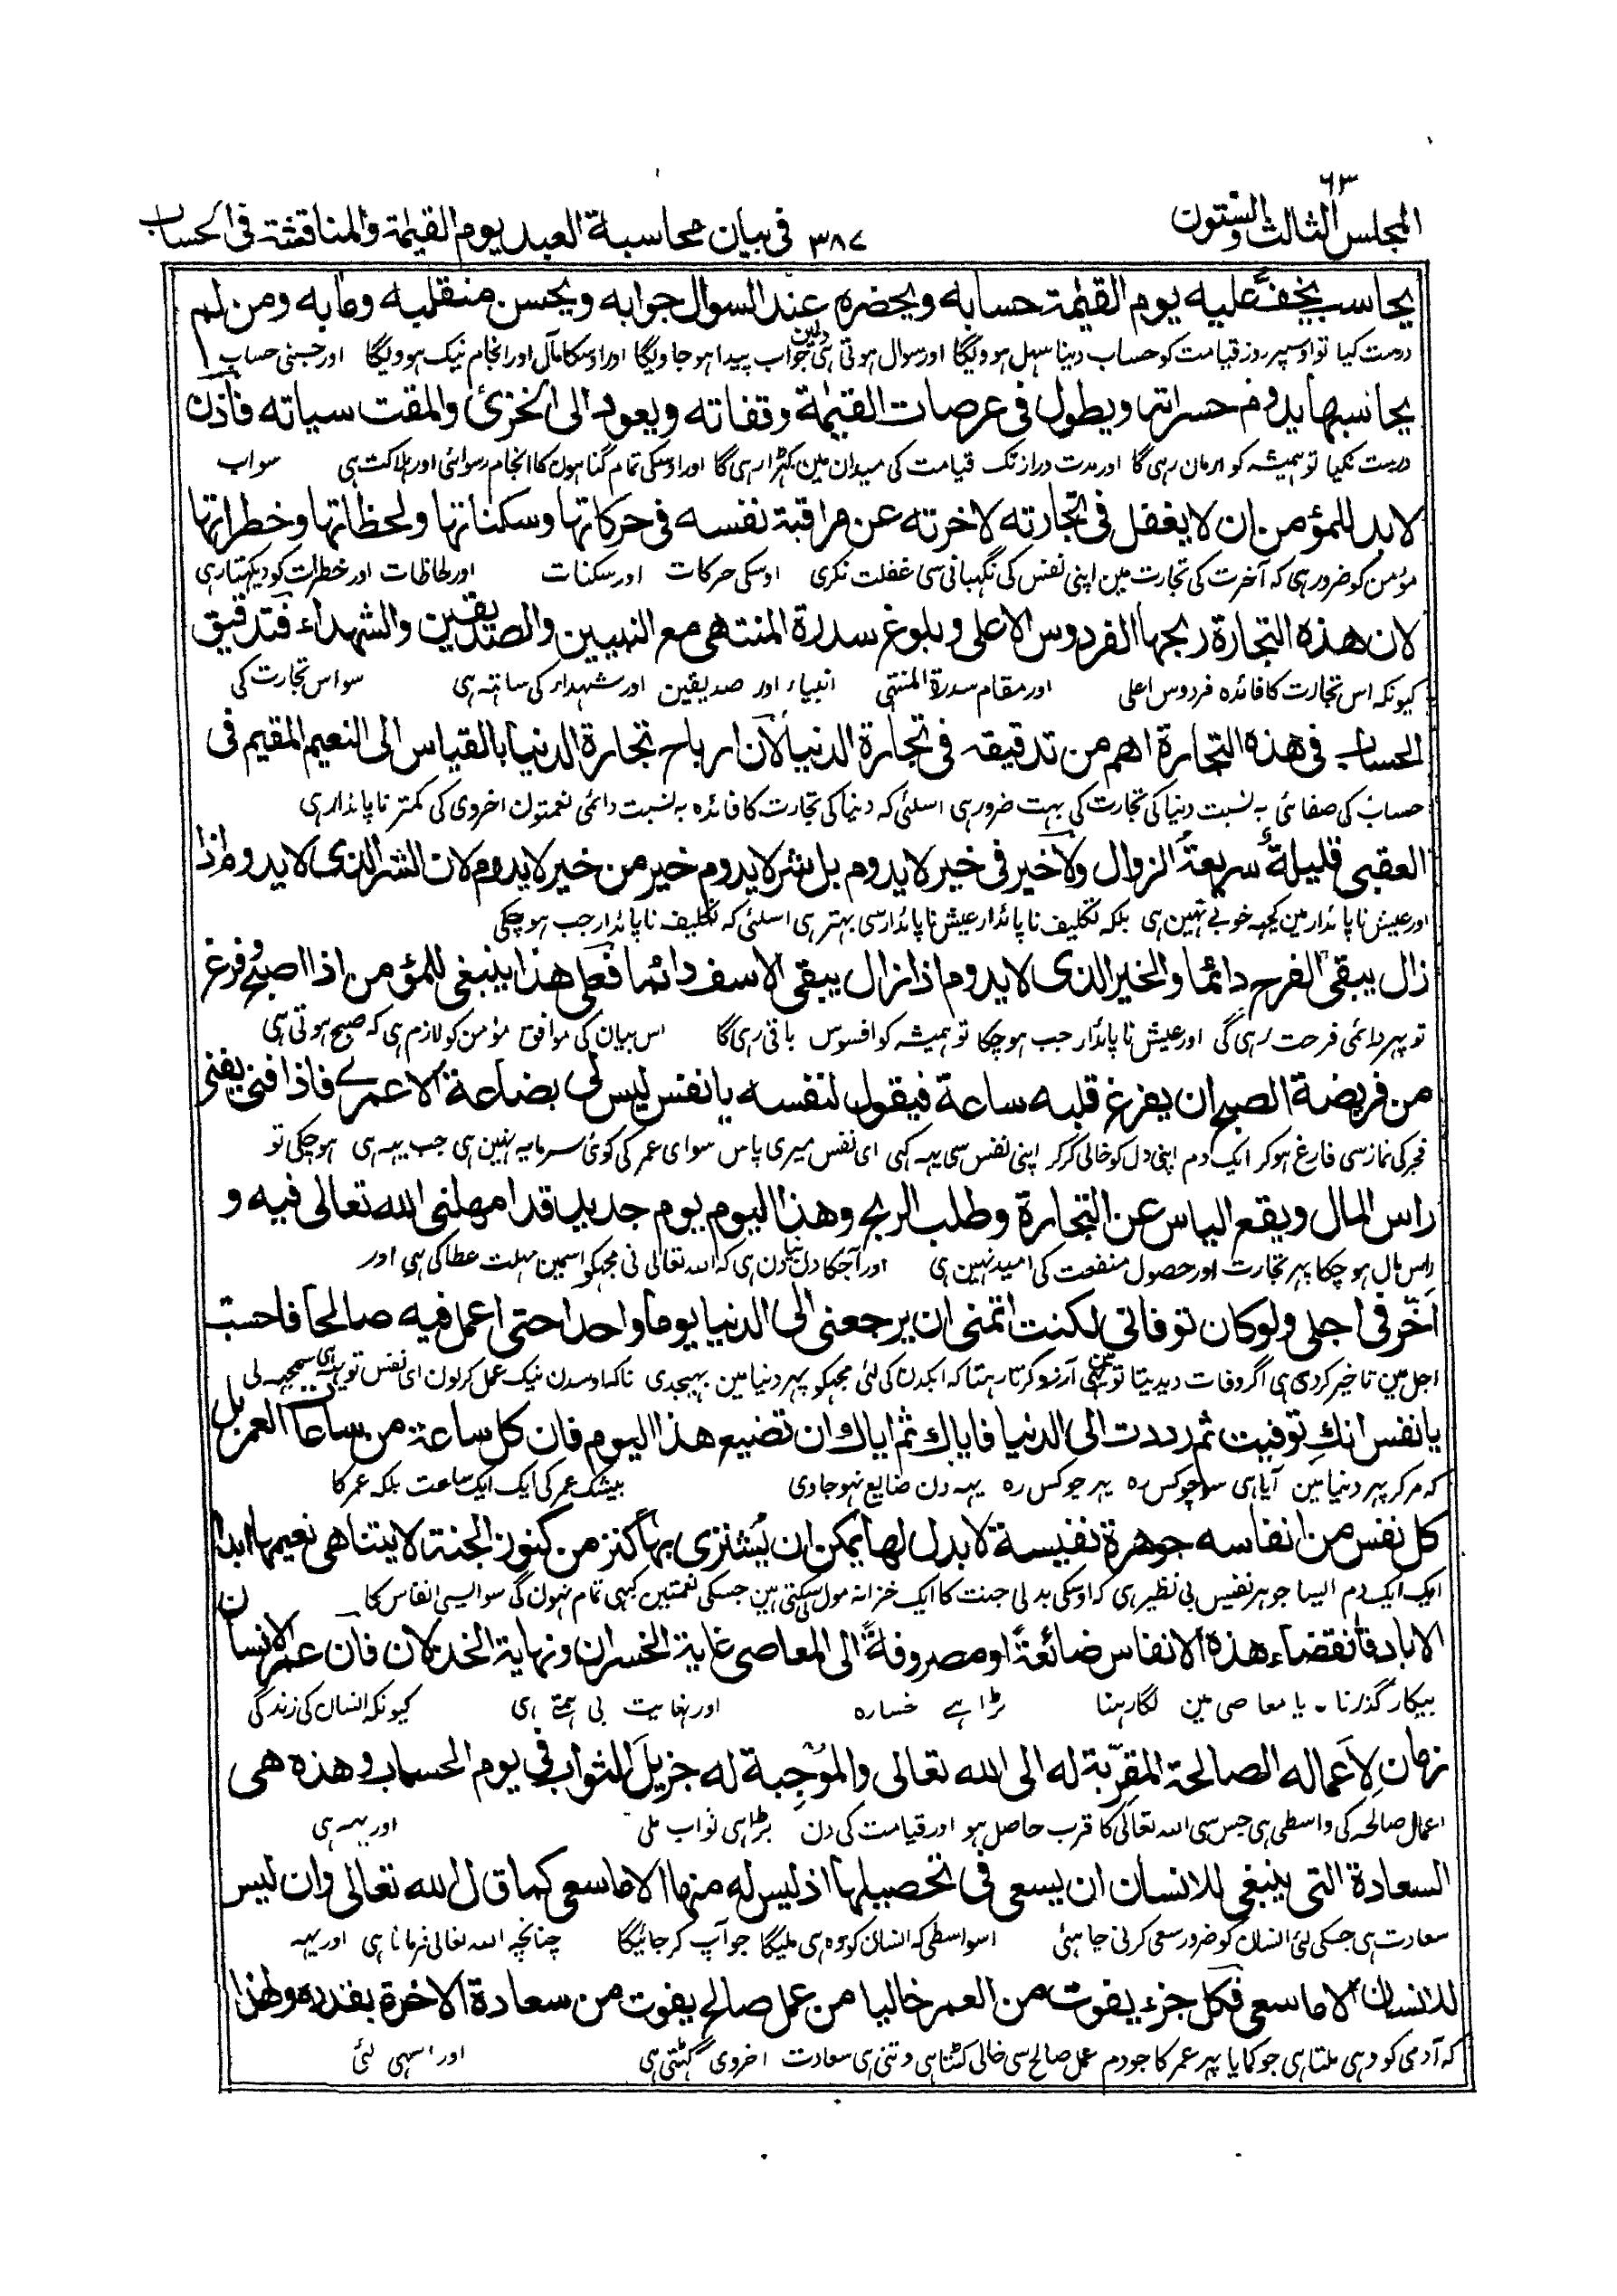 ٦٣
المجلس الثالث والستون ٣٨٧ فى بيان محاسبة العبد يوم القيمة والمناقشة فى الحساب
يحاسب يخف عليه يوم القيمة حسابه ويحضره عند السوال جوابه ويحسن منقلبه ومابه ومن لم
درست کیا تو اوسپر روز قیامت کو حساب دینا سہل ہوویگا اور سوال ہوتی ہی دلمین جواب پیدا ہو جاویگا اور اوسکا مآل اور انجام نیک ہوویگا اور جسنی حساب
يحاسبها يدوم حسراته ويطول فى عرصات القيمة وقفاته ويعود الى الخزى والمقت سياته فاذن
درست نکیا تو ہمیشہ کو ارمان رہی گا اور مدت دراز تک قیامت کی میدان مین کہڑا رہی گا اور اوسکی تمام گناہون کا انجام رسوائی اور ہلاکت ہی سو اب
لابد للمؤمن ان لا يغفل فى تجارته لاخرته عن مراقبة نفسه فى حركاتها وسكناتها ولحظاتها وخطراتها
مؤمن کو ضرور ہی کہ آخرت کی تجارت مین اپنی نفس کی نگہبانی سی غفلت نکری اوسکی حرکات اور سکنات اور لحاظات اور خطرات کو دیکہتا رہی
لان هذه التجارة ربحها الفردوس الاعلى وبلوغ سدرة المنتهى مع النبيين والصديقين والشهداء فتدقيق
کیونکہ اس تجارت کا فائدہ فردوس اعلی اور مقام سدرة المنتہی انبیاء اور صدیقین اور شہداء کی ساتہ ہی سو اس تجارت کی
الحساب فى هذه التجارة اهم من تدقيقه فى تجارة الدنيا لان ارباح تجارة الدنيا بالقياس الى النعيم المقيم فى
حساب کی صفائی بہ نسبت دنیا کی تجارت کی بہت ضرور ہی اسلئی کہ دنیا کی تجارت کا فائدہ بہ نسبت دائمی نعمتون اخروی کی کمتر ناپائدار ہی
العقبى قليلة سريعة الزوال ولا خير فى خير لا يدوم بل شر لا يدوم خير من خير لا يدوم لان الشر الذى لا يدوم اذا
اور عیش ناپائدار مین کچہہ خوبی نہین ہی بلکہ تکلیف ناپائدار عیش ناپائدار سی بہتر ہی اسلئی کہ تکلیف ناپائدار جب ہو چکی
زال يبقى الفرح دائما والخير الذى لا يدوم اذا زال يبقى الاسف دائما فعلى هذا ينبغى للمؤمن اذا اصبح وفرغ
تو پہر دائمی فرحت رہی گی اور عیش ناپائدار جب ہو چکا تو ہمیشہ کو افسوس باقی رہی گا اس بیان کی موافق مؤمن کو لازم ہی کہ صبح ہوتی ہی
من فريضة الصبح ان يفرغ قلبه ساعة فيقول لنفسه يا نفس ليس لى بضاعة الا عمرى فاذا فنى يفنى
فجر کی نماز سی فارغ ہوکر ایک دم اپنی دل کو خالی کر کر اپنی نفس سی یہہ کہی ای نفس میری پاس سوای عمر کی کوئی سرمایہ نہین ہی جب یہہ ہی ہو چکی تو
راس المال ويقع الياس عن التجارة وطلب الربح وهذا اليوم يوم جديد قد امهلنى الله تعالى فيه و
راس مال ہو چکا پہر تجارت اور حصول منفعت کی امید نہین ہی اور آجکا دن نیا دن ہی کہ اللہ تعالی نی مجہکو اسمین مہلت عطا کی ہی اور
اخّر فى اجلى ولو كان توفانى لكنت اتمنى ان يرجعنى الى الدنيا يوما واحدا حتى اعمل فيه صالحا فاحسب
اجل مین تاخیر کردی ہی اگر وفات دیدیتا تو مین یہی آرزو کرتا رہتا کہ ایکدن کی لئی مجہکو پہر دنیا مین بہیجدی تاکہ اوسدن نیک عمل کرلون ای نفس تو یہہ ہی سمجہہ لی
يا نفس انك توفيت ثم رددت الى الدنيا فاياك ثم اياك وان تضيع هذا اليوم فان كل ساعة من ساعات العمر بل
کہ مر کر پہر دنیا مین آیا ہی سو چوکس رہ پہر چوکس رہ یہہ دن ضایع نہو جاوی بیشک عمر کی ایک ایک ساعت بلکہ عمر کا
كل نفس من انفاسه جوهرة نفيسة لا بدل لها يمكن ان يشترى بها كنز من كنوز الجنة لا يتناهى نعيمها ابدا
ایک ایک دم ایسا جوہر نفیس بی نظیر ہی کہ اوسکی بدلی جنت کا ایک خزانہ مول لی سکتی ہین جسکی نعمتین کبہی تمام نہون گی سو ایسی انفاس کا
الاباد فانقضاء هذه الانفاس ضائعة او مصروفة الى المعاصى غاية الخسران ونهاية الخذلان فان عمر الانسان
بیکار گذرنا ۔ یا معاصی مین لگا رہنا بڑا ہے خسارہ اور نہایت بی ہمتے ہی کیونکہ انسان کی زندگی
زمان لاعماله الصالحة المقرّبة له الى الله تعالى والموجبة له جزيل الثواب فى يوم الحساب وهذه هى
اعمال صالحہ کی واسطی ہی جس سی اللہ تعالی کا قرب حاصل ہو اور قیامت کی دن بڑا ہی ثواب ملی اور یہہ ہی
السعادة التى ينبغى للانسان ان يسعى فى تحصيلها اذ ليس له منها الا ما سعى كما قال الله تعالى وان ليس
سعادت ہی جسکی لئی انسان کو ضرور سعی کرنی چاہئی اسواسطی کہ انسان کو وہ ہی ملیگا جو آپ کر جائیگا چنانچہ اللہ تعالی فرماتا ہی اور یہہ
للانسان الا ما سعى فكل جزء يفوت من العمر خاليا من عمل صالح يفوت من سعادة الاخرة بقدره ولهذا
کہ آدمی کو وہی ملتا ہی جو کمایا پہر عمر کا جو دم عمل صالح سی خالی کٹتا ہی وتنی ہی سعادت اخروی گہٹتی ہی اور اسہی لئی